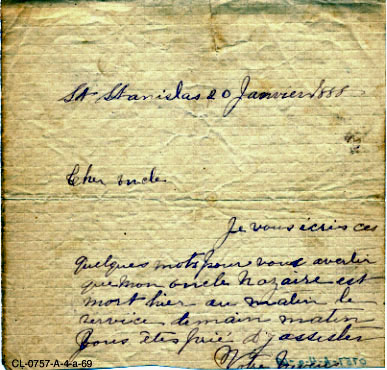 St Stanislas 20 Janvier 1888
Cher oncle
Je vous écris ces
quelques mots pour vous avertir
que mon oncle Nazaire est
mort hier au matin le
service demain matin
Vous êtes prié d'y assister
Votre
CL-0757-A-4-a-69